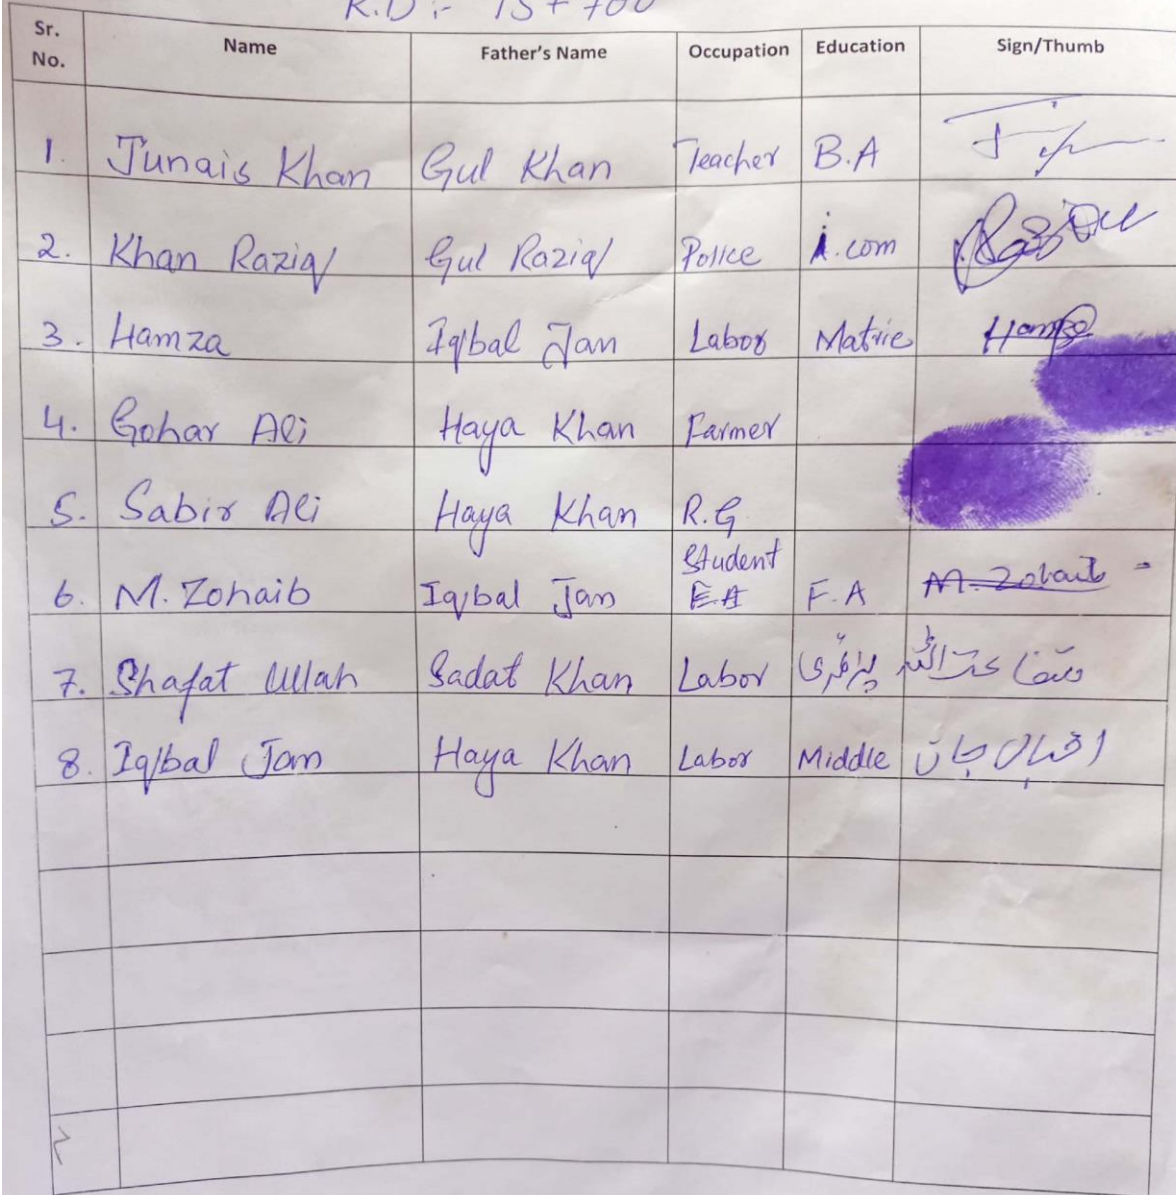 R.D :- 15+700
Sr. No. Name Father's Name Occupation Education Sign/Thumb
1. Junais Khan Gul Khan Teacher B.A
2. Khan Raziq Gul Raziq Police i.com Raziq
3. Hamza Iqbal Jan Labor Matric Hamza
4. Gohar Ali Haya Khan Farmer
5. Sabir Ali Haya Khan R.G
6. M. Zohaib Iqbal Jan Student F.A M. Zohaib
7. Shafat Ullah Sadat Khan Labor پرائمری شفاعت اللہ
8. Iqbal Jan Haya Khan Labor Middle اقبال جان